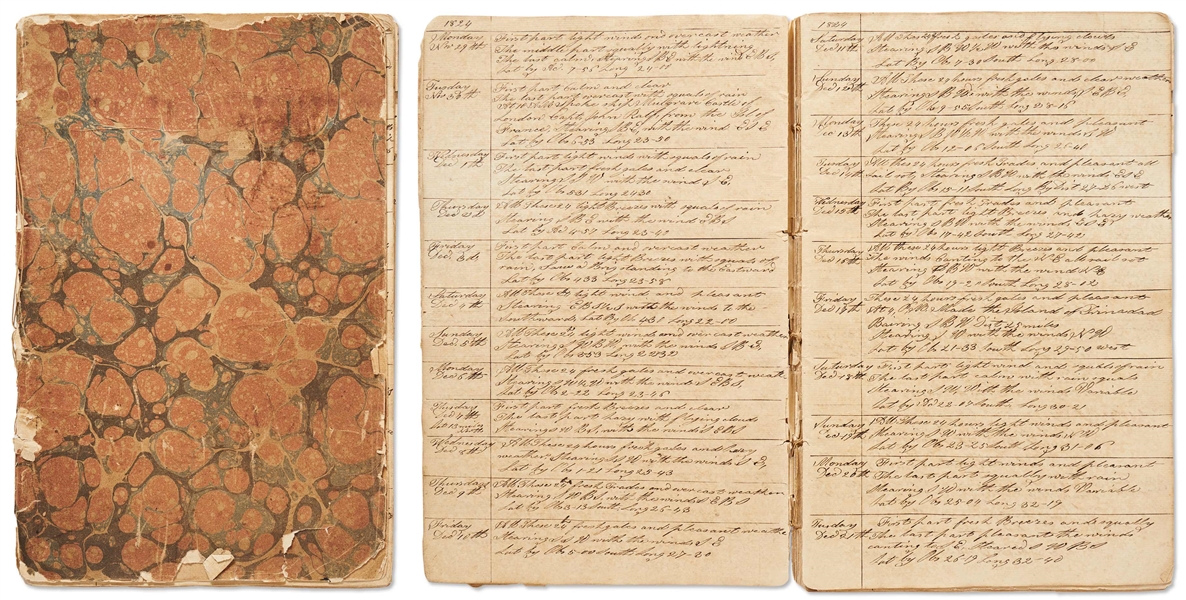 1824
Monday First part light winds and overcast weather
Nov 29th The middle part squally with lightning
The last calm Stearing SBE with the wind EBS,
Lat by Ac. 7-55 Long 24-11
Tuesday First part Calm and clear
Nov 30th The last part overcast with squals of rain
spoke ship Musgrave Castle of
London Capt John Ralf from the Isl of
France, Stearing SE, with the wind
Lat by Obs 5-33 Long 23-30
Wednesday First part light winds with squals of rain
Dec 1th The last part fresh gales and clear
Stearing with the wind S E,
Lat by Obs 5-31 Long 24-30
Thursday All These 24 light Breeses with squals of rain
Dec 2th Stearing SBE with the wind EBS
Lat by Ac 4-57 Long 23-40
Friday First part Calm and overcast weather
Dec 3d The last part light Breeses with squals of
rain, Saw a Brig standing to the Eastward
Lat by Obs 4-33 Long 23-58
Saturday All These 24 light winds and pleasant
Dec 4th Stearing the winds to the
Southward Lat By Obs 4-31 Long 22-00
Sunday All These 24 light winds and overcast weather
Dec 5th Stearing WBN with the winds SBE,
Lat by Obs 3-53 Long 22-32
Monday All These 24 fresh gales and overcast weath
Dec 6th Stearing with the winds SEBS,
Lat by Obs 2-22 Long 23-46
Tuesday First part fresh Breeses and clear
Dec 7th The last part hasy with flying clouds
Stearing with the winds
Wednesday All These 24 hours fresh gales and hasy
Dec 8th weather Stearing SW with the winds S E,
Lat by Obs 1-21 Long 25-43
Thursday All These 24 fresh Trades and overcast weather
Dec 9th Stearing with the winds EBS
Lat by Obs 3-13 South Long 26-43
Friday All These 24 fresh gales and pleasant weathe
Dec 10th Stearing with the winds S E
Lat by Obs 5-00 South Long 27-20
1824
Saturday All These fresh gales and flying clouds
Dec 11th Stearing with the winds S E
Lat By Obs 7-30 South Long 28-00
Sunday All These 24 hours fresh gales and clear weather
Dec 12th Stearing SBW with the winds SEBE,
Lat by Obs 9-55 South Long 28-16
Monday These 24 hours fresh gales and pleasant
Dec 13th Stearing with the winds
Lat by Obs 12-06 South Long 28-41
Tuesday All this 24 hours fresh Trades and pleasant all
Dec 14th Sail out Stearing SBW with the winds
Lat By Obs 15-11 South Long By Lat 27-36 west
Wednesday First part fresh Trades and pleasant
Dec 15th The last part light Breeses and hasy weathe
Stearing SBW with the winds
Lat by Obs 17-42 South Long 27-42
Thursday All these 24 hours light Breeses and pleasant
Dec 16th The winds Canting to the N E all sail out
Stearing SBW with the winds N E
Lat by Obs 19-2 South Long 28-12
Friday These 24 hours fresh gales and pleasant
Dec 17th At 4, PM Made the Island of Trinadad
Bearing SBW Dist 25 miles
Stearing SW with the winds N W
Lat by Obs 21-33 South Long 29-50 west
Saturday First part light wind and squals of rain
Dec 18th The last part calm with rain squals
Stearing With the winds Variable
Lat by Ac 22-07 South Long 30-21
Sunday All These 24 hours light winds and pleasant
Dec 19th Stearing SW with the winds N W
Lat By Obs 23-25 South Long 31-06
Monday First part light winds and pleasant
Dec 20th The last part squaly with rain
Stearing SW with the winds Variable
Lat by Obs 25-09 Long 32-17
Tuesday First part fresh Breeses and squally
Dec 21th The last part pleasant the winds
canting Stearing
Lat by Obs 26-19 Long 32-40